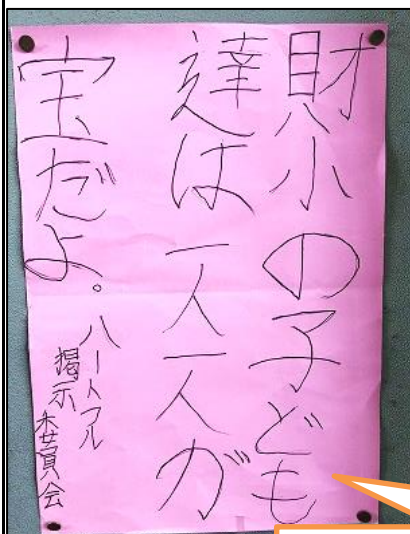 財小の子ども
達は一人一人が
宝だよ。
ハートフル
掲示委員会